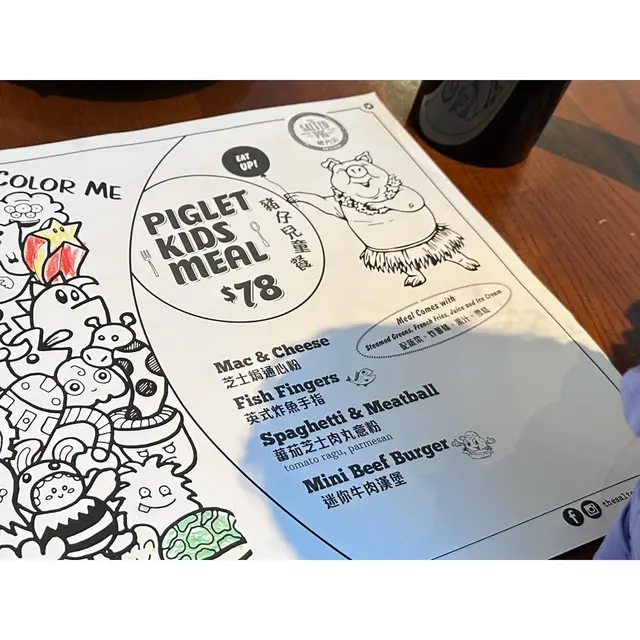 COLOR ME
THE
SALTED
PIG
EAT
UP!
PIGLET
KIDS
MEAL
$78
豬仔兒童餐
Meal Comes with
Steamed Greens, French Fries, Juice and Ice Cream
配蔬菜、炸薯條、果汁、雪糕
Mac & Cheese
芝士焗通心粉
Fish Fingers
英式炸魚手指
Spaghetti & Meatball
蕃茄芝士肉丸意粉
tomato ragu, parmesan
Mini Beef Burger
迷你牛肉漢堡
thesalte